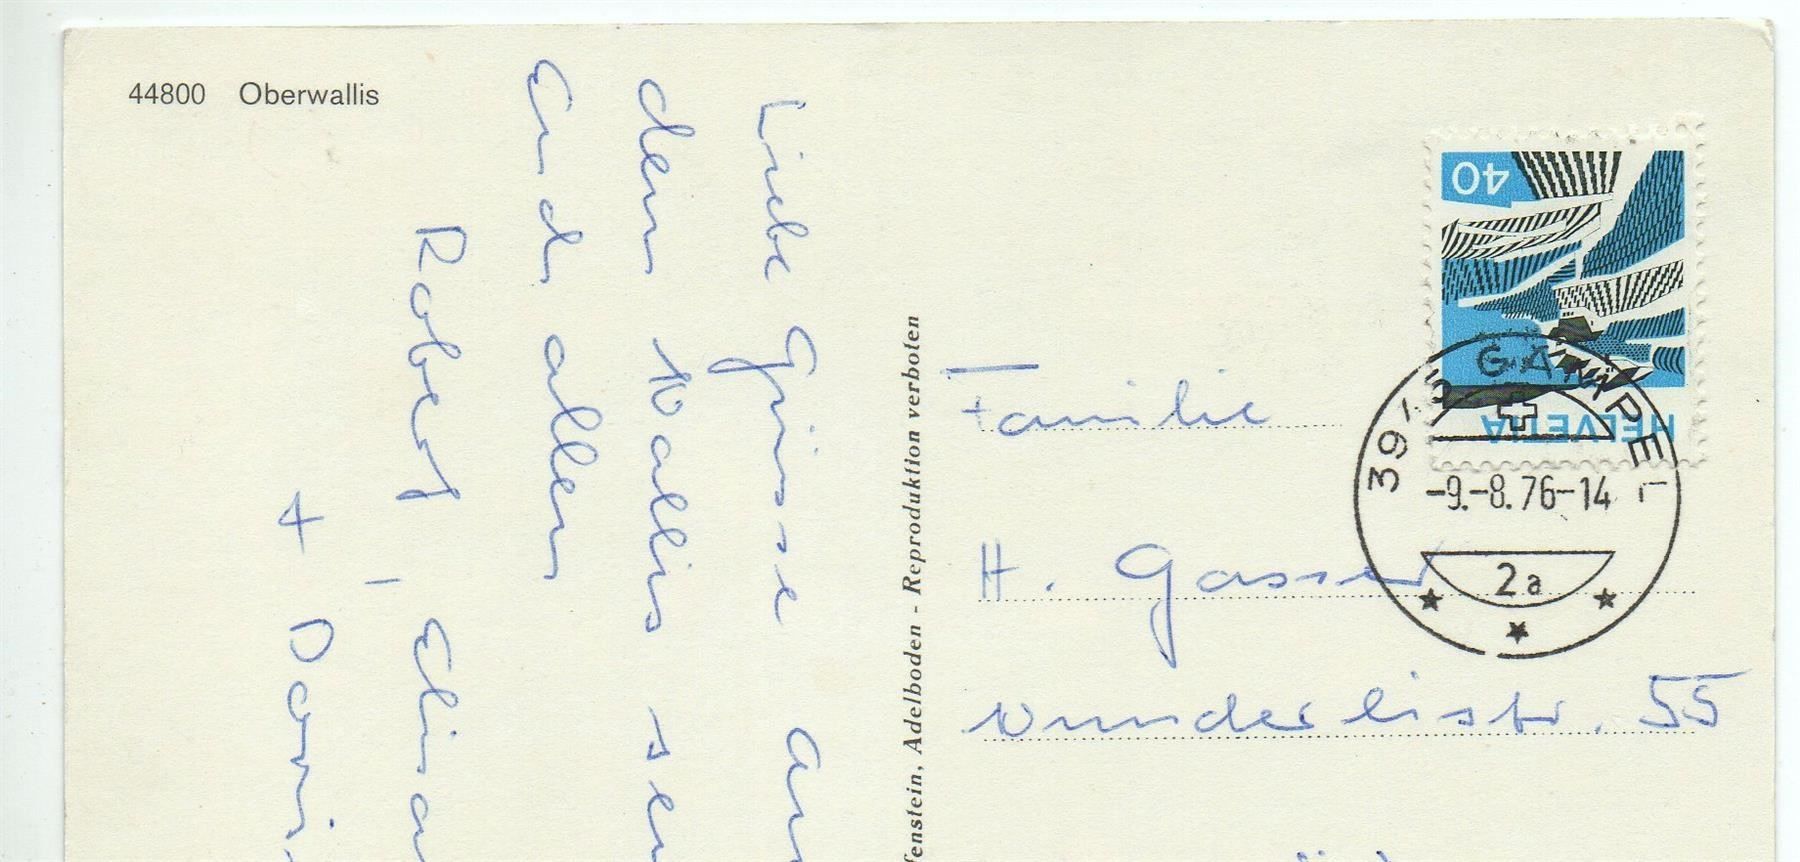 44800 Oberwallis
Liebe Grüsse aus
dem Wallis sen
Euch allen
Robert, Elisa
+ Dori
fenstein, Adelboden - Reproduktion verboten
40
HELVETIA
3945 GAMPEL
-9.-8.76-14
2a
Familie
H. Gasser
Wunderlistr. 55